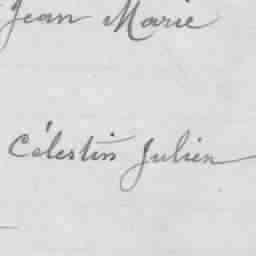 Jean Marie
Célestin Julien